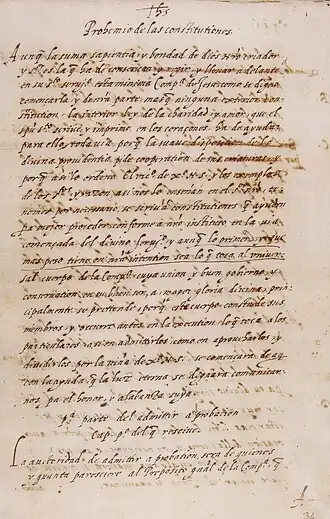 Prohemio de las constitutiones.
Aunq̄ la suma sapientia, y bondad de dios nr̄o criador
y Sr̄ es la q̄ ha de conseruar y regir, y lleuar adelante
en su Sto seruiº esta minima Compª de Jesu, como se digno
començarla, y de nr̄a parte, mas q̄ ninguna exterior con-
stitution, la interior ley de la charidad, y amor, que el
spũ sto scriue, y imprime en los coraçones, ha de ayudar
para ello, todauia porq̄ la suaue disposicion de la
diuina prouidentia pide cooperation de sus criaturas, y
porq̄ asi lo ordenó el vicº de X° N. S. y los exemplos
de los stos y razon asi nos lo enseñan en el Sr̄ nr̄o, te-
nemos por necesario, se scriuan constitutiones q̄ ayuden
pa mejor proceder conforme a nr̄o instituto en la uia
començada del diuino seruiº y aunq̄ lo primero, y que
mas peso tiene en nr̄a intention sea lo q̄ toca al uniuer-
sal cuerpo de la Compª, cuya union, y buen gobierno, y
conseruation en su buen ser, a mayor gloria diuina, prin-
cipalmente se pretende, porq̄ este cuerpo consta de sus
miembros, y occurre antes en la execution lo q̄ toca a los
particulares, asi en admitirlos, como en aprouecharlos, y
diuidirlos por la viña de X° N. S. se començará de aq̄
con la ayuda q̄ la luz eterna se dignara comunicar-
nos, pa el honor, y alabanza suya.
pª parte del admittir a probation
Cap. pº del q̄ resciue.
La autoridad de admitir a probation, sera de quienes
y quanto paresciere al Preposito gn̄al de la Compª, q̄